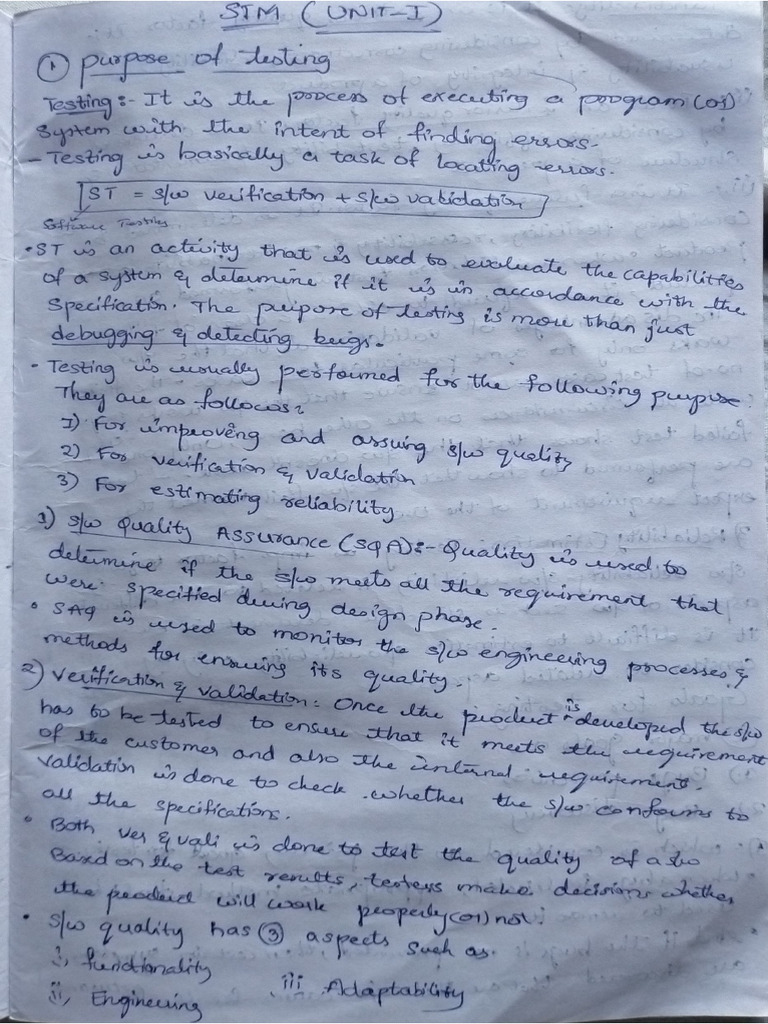 STM (UNIT-I)
① purpose of testing
Testing:- It is the process of executing a program (or)
system with the intent of finding errors.
- Testing is basically a task of locating errors.
ST = s/w verification + s/w validation
Software Testing
• ST is an activity that is used to evaluate the capabilities
of a system & determine if it is in accordance with the
specification. The purpose of testing is more than just
debugging & detecting bugs.
- Testing is usually performed for the following purpose.
They are as follows:
1) For improving and assuring s/w quality
2) For verification & validation
3) For estimating reliability
1) s/w Quality Assurance (SQA):- Quality is used to
determine if the s/w meets all the requirement that
were specified during design phase.
• SAQ is used to monitor the s/w engineering processes &
methods for ensuring its quality.
2) Verification & validation: Once the product is developed the s/w
has to be tested to ensure that it meets the requirement
of the customer and also the internal requirement.
Validation is done to check whether the s/w conforms to
all the specifications.
• Both ver & vali is done to test the quality of a s/w
Based on the test results, testers make decisions whether
the product will work properly (or) not.
• s/w quality has ③ aspects such as.
i, functionality
iii Adaptability
ii, Engineering